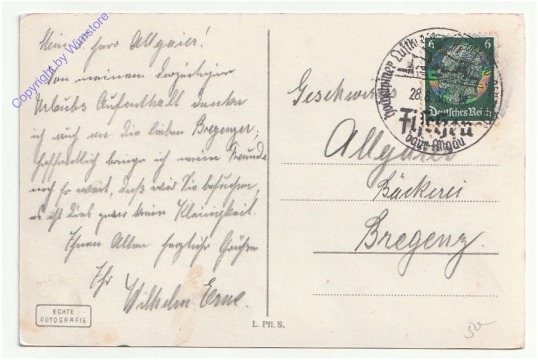 Mein lieber Herr Allgaier!
Von meinem derzeitigen
Urlaubs Aufenthalt denke
ich auch an die lieben Bregenzer;
hoffentlich bringe ich meine Freunde
noch so weit, daß wir Sie besuchen,
es ist dies zwar keine Kleinigkeit.
Ihnen Allen herzliche Grüße
Ihr
Wilhelm
ECHTE
FOTOGRAFIE
L. Pfl. S.
6 6
Deutsches Reich
28.
Füssen
bayr. Allgäu
Geschwister
Allgaier
Bäckerei
Bregenz.
Copyright by Winnstore